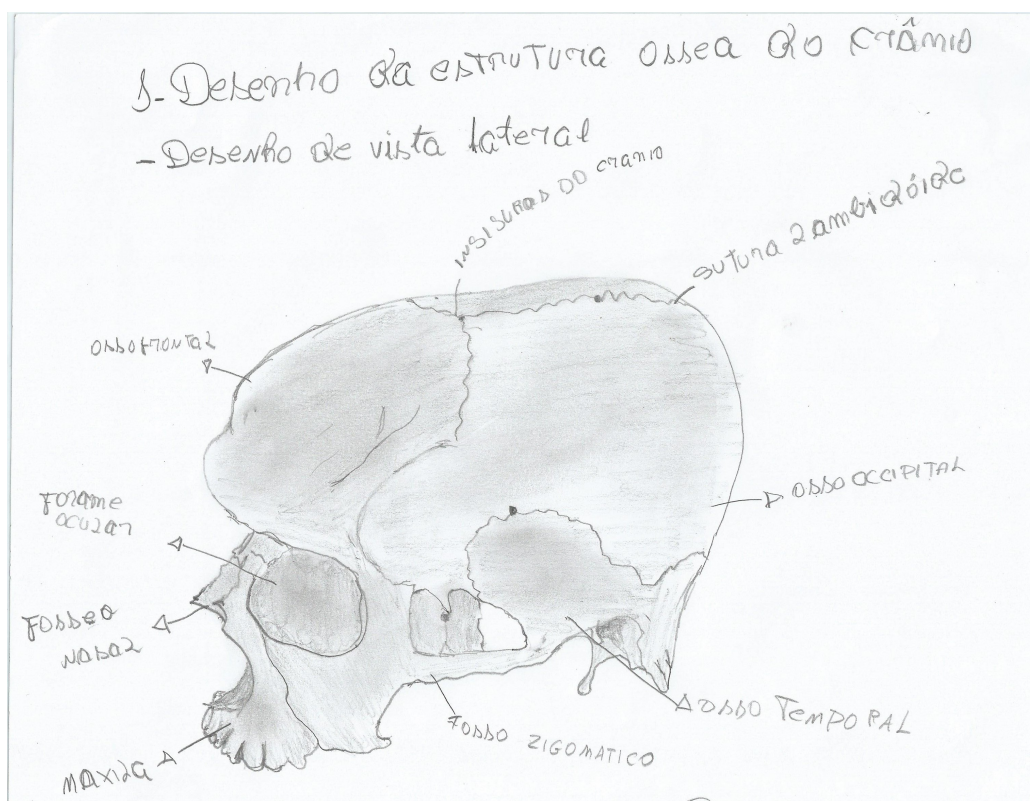 1-Desenho da estrutura ossea do crânio
-Desenho de vista lateral
INSISURAS DO cranio
sutura lambidóide
osso frontal
osso occipital
Forame
ocular
Fosseo
nasal
osso Temporal
Fosso ZIGOMATICO
Maxila